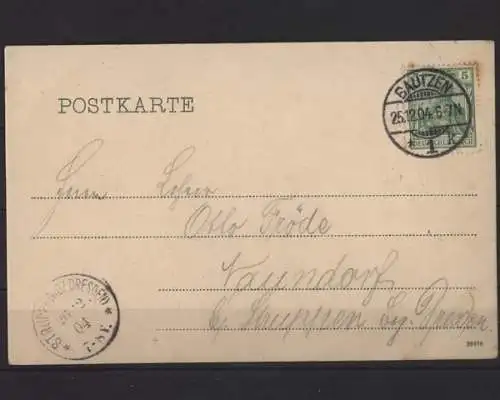 5
BAUTZEN
25.12.04. 6-7N.
* 1 *
POSTKARTE
Herrn Lehrer
Otto Tröde
Naundorf
b. Struppen Bz. Dresden
* STRUPPEN (BZ. DRESDEN) *
04
7-8V.